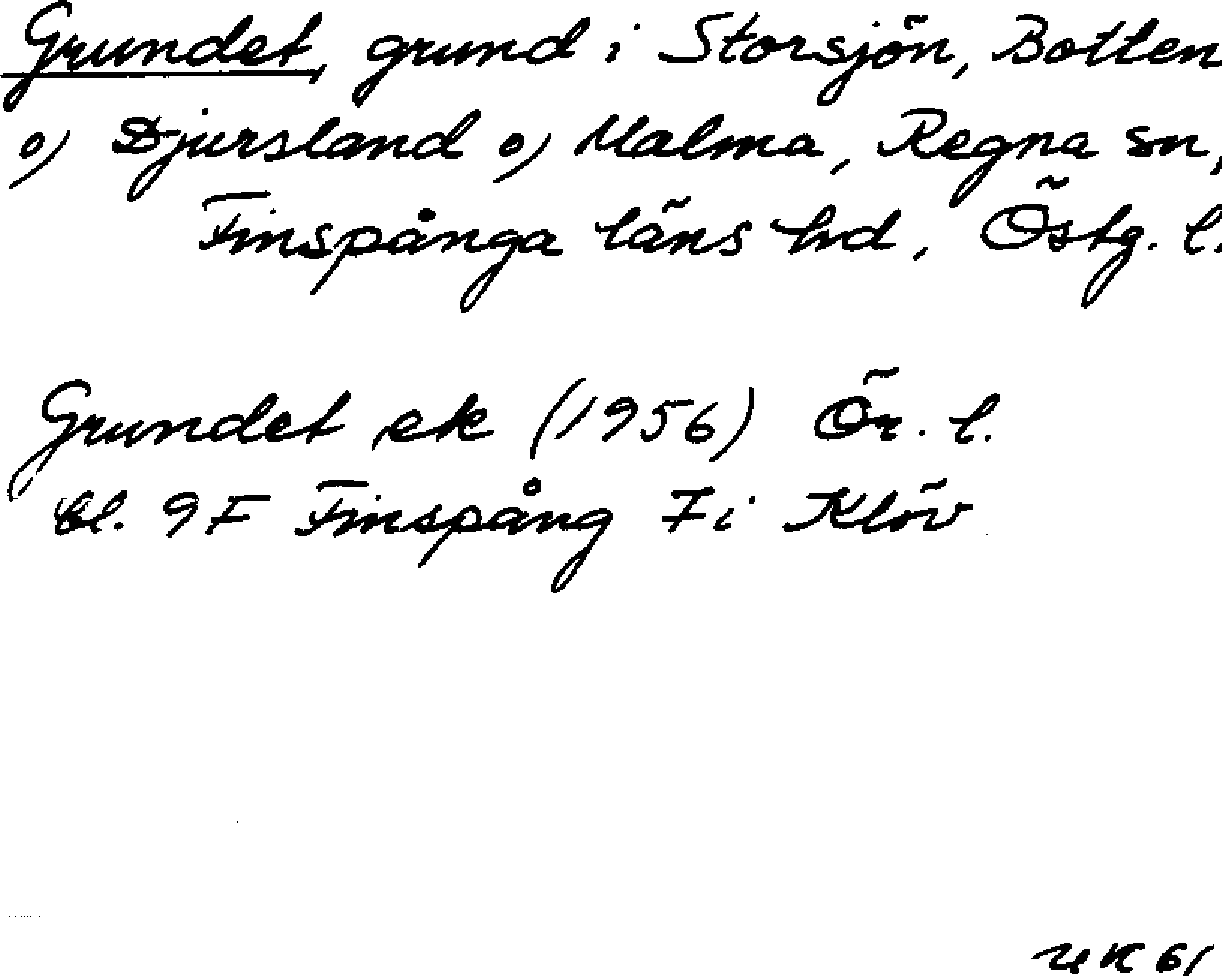 Grundet, grund i Storsjön, Botten
o) Djursland o) Malma, Regna sn,
Finspånga läns hd, Östg. l.
Grundet ek (1956) Ör. l.
bl. 9F Finspång 7i Klöv
UK 61